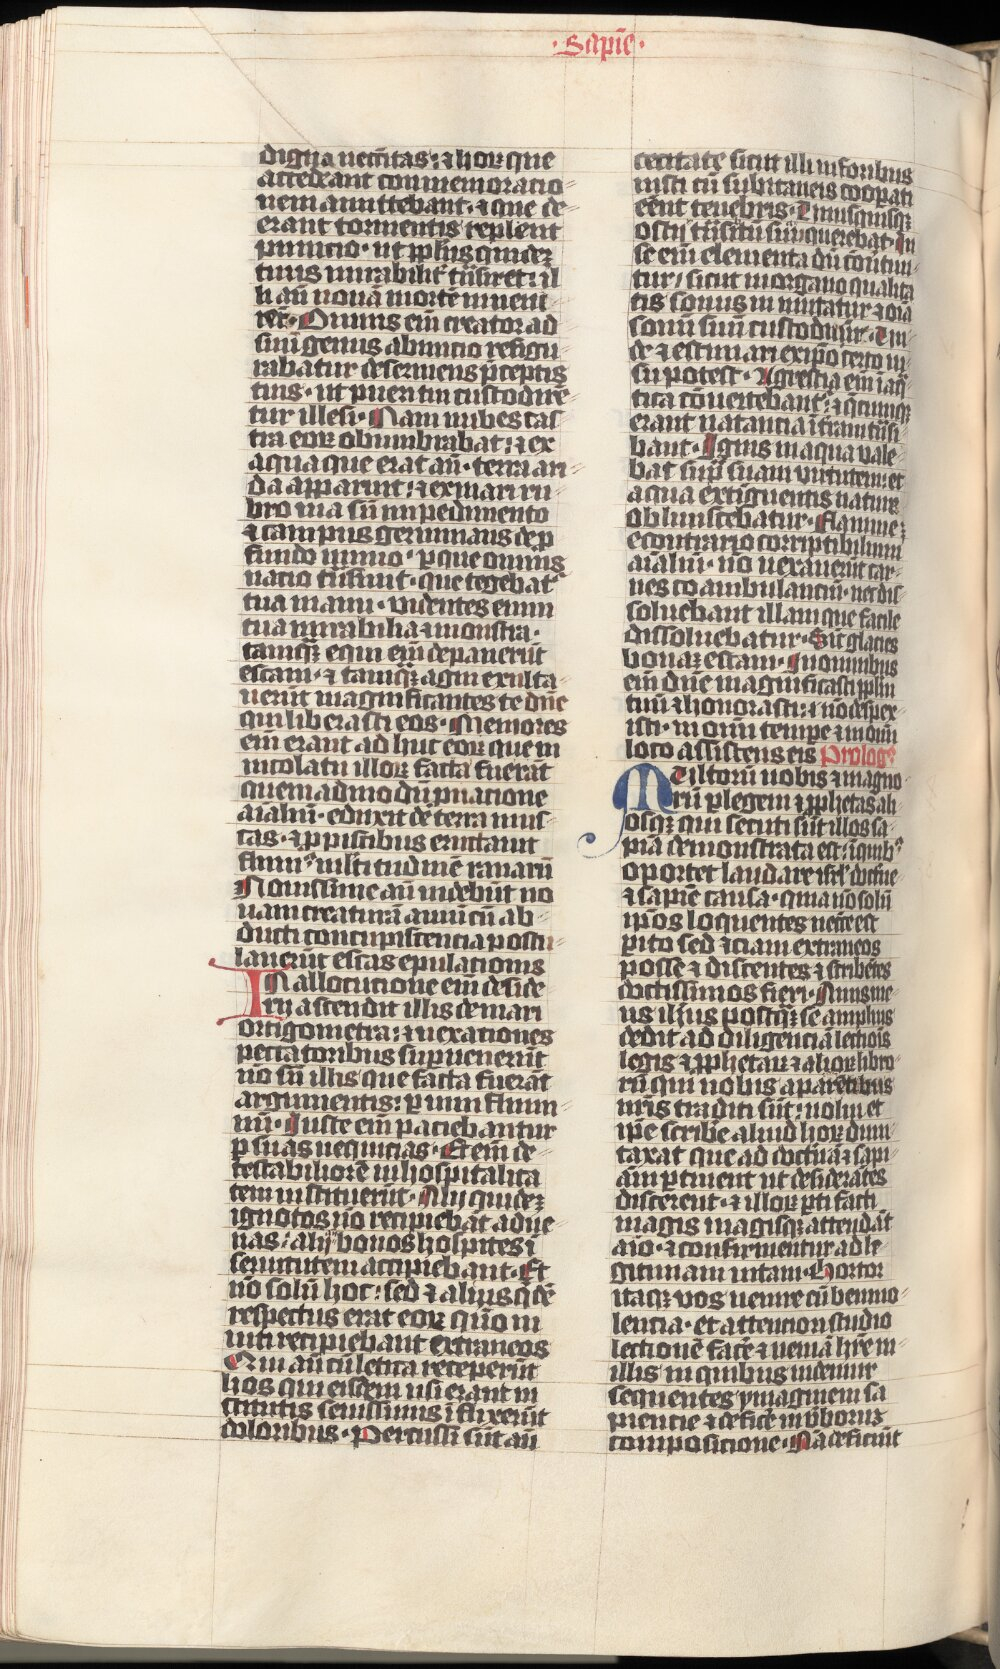 ·Sapīe·
digna neccītas: ⁊ horꝝ que
accederant conmemoratio
nem amittebant· ⁊ que de
erant tormentis repleret
punicio· ut ppl̄us quidez
tuus mirabilit̄ tn̄siret: il
li aū nouā mortē inueni
ret· Omnis em̄ creatoꝛ ad
suū genus ab inicio refigu
rabatur deseruiens p̄ceptis
tuis· ut pueri tui custodire
tur illesi· Nam nubes cas
tra eoꝝ obumbrabat: ⁊ ex
aqua que erat an̄· terra ari
da apparuit: ⁊ ex mari ru
bro uia sn̄ impedimento
⁊ campus germinans de p̄
fundo nimio· p que omnis
nacio tn̄siuit· que tegebat̄
tua manu· uidentes enim
tua mirabilia ⁊ monstra·
tamqꝫ equi em̄ depauerūt
escam· ⁊ tamqꝫ agni exulta
uerūt magnificantes te dn̄e
qui liberasti eos· Memores
em̄ erant ad huc eoꝝ que in
incolatu illoꝝ facta fuerāt
quemadmodū p natione
aīaliū· eduxit de terra mus
cas· ⁊ p piscibus eructauit
fluuiꝰ multitudinē ranarū
Nouissime aū uiderūt no
uam creaturā auiū cū ab
ducti concupiscencia postu
lauerūt escas epulationis
IN allocutione em̄ deside
rij ascendit illis de mari
ortigometra: ⁊ uexationes
peccatoribus supuenerūt
nō sn̄ illis que facta fuerāt
argumentis: p uim flumi
nū· Iuste em̄ paciebantur
p suas nequicias· Etem̄ de
testabiliorē inhospitalita
tem instituerūt· Alij quidez
ignotos nō recipiebāt adue
nas: alij bonos hospites ī
seruitutem accipiebant· Et
nō solū hoc: sed ⁊ alius q̄dē
respectus erat eoꝝ q̄uō in
uiti recipiebant extraneos
Qui aū cū leticia receperūt
hos qui eisdem usi erant in
sticiis seuissimis ī flixerūt
doloribus· Percussi sūt aū
cecitate sicut illi in foribus
iusti cū subitaneis cooꝑati
eēnt tenebris· Unusquisqꝫ
ostij tn̄sitū suū querebat· In
se em̄ elementa dū cōūtun
tur/ sicut in organo qualita
tis sonus in mutatur ⁊ oīa
sonū suū custodiūt· Un
de ⁊ estimari ex ip̄o certo ui
su potest· Agrestia em̄ ī aq̄
tica cōuertebant̄: ⁊ q̄cumqꝫ
erant natancia ī t̄ram tn̄si
bant· Ignis in aqua uale
bat sup̄ suam uirtutem: et
aqua extinguentis nature
obliuiscebatur· Flamme:
econtrario corruptibilium
aīaliū· nō uexauerūt car
nes coambulantiū· nec dis
soluebant illam que facile
dissoluebatur· Sic̄ glacies
bonaꝫ escam· In omnibus
em̄ dn̄e magnificasti ppl̄m
tuū ⁊ honorasti: ⁊ nō despex
isti· in om̄i tempe ⁊ in om̄i
loco assistens eis Prologꝰ
MUltorū nobis ⁊ magno
rū p legem ⁊ pphetas ali
osqꝫ qui secuti sūt illos sa
piā demonstrata est: ī quibꝰ
oportet laudare isrl̄ doctrīe
⁊ sapīe causa· quia nō solū
ip̄os loquentes necc̄e est
pito sed ⁊ ciam extraneos
posse ⁊ discentes ⁊ scribētes
doctissimos fieri· Auus me
us ihūs postqꝫ se amplius
dedit ad diligenciā lectiōis
legis ⁊ pphetaꝝ ⁊ alioꝝ libro
rū qui nobis a parētibus
nr̄is traditi sūt: uoluit et
ip̄e scribe̅ aliud horꝝ dum
taxat que ad doctrinā ⁊ sapi
am ptinent ut desiderātes
discerent· ⁊ illoꝝ pti facti
magis magisqꝫ attendāt
aīo· ⁊ confirmentur ad le
gittimam uitam· Hortor
itaqꝫ uos uenire cū beniuo
lencia· et attention studio
lectionē facē ⁊ ueniā hr̄e in
illis in quibus uidemur
sequentes ymaginem sa
piencie ⁊ deficē in ūborum
composicione· Nā deficiūt